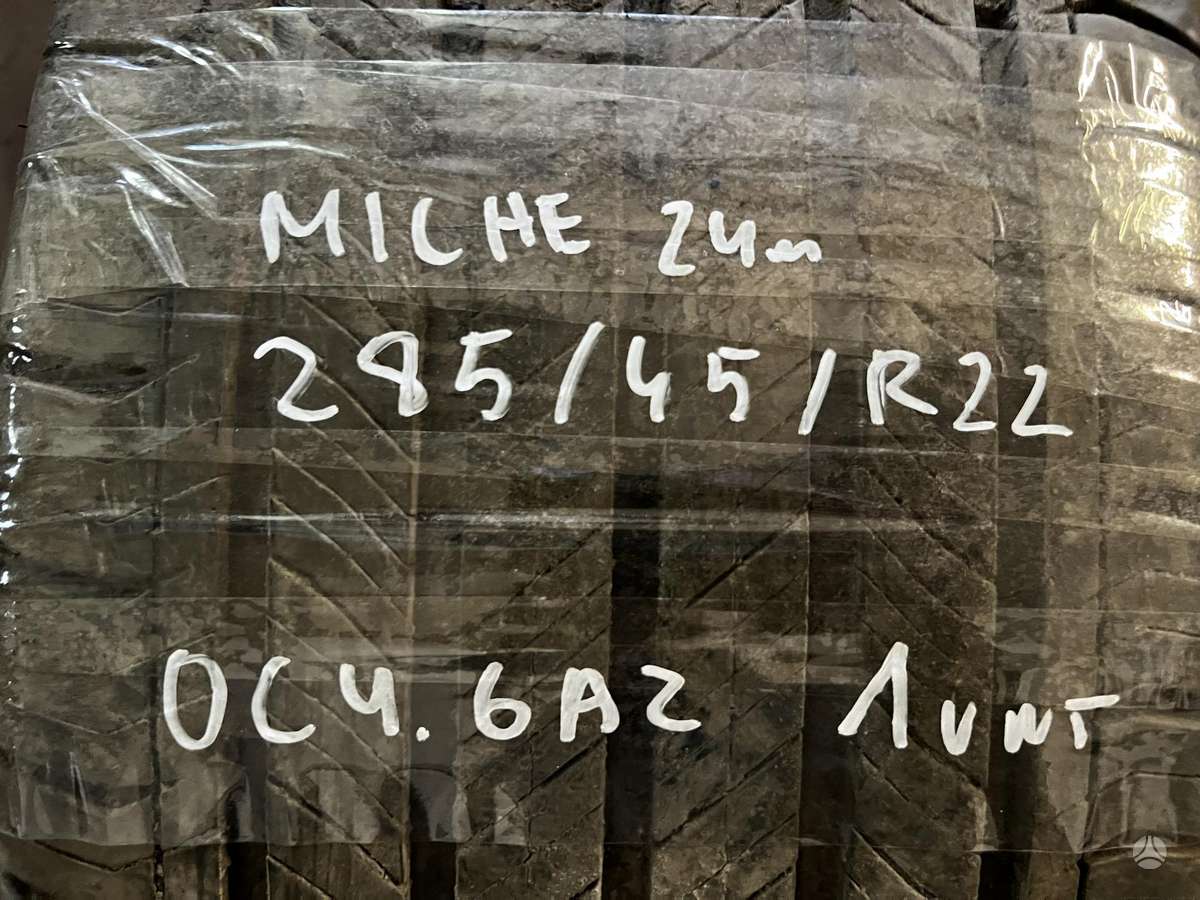 MICHE 24m
285/45/R22
OC4.6A2 1 VNT